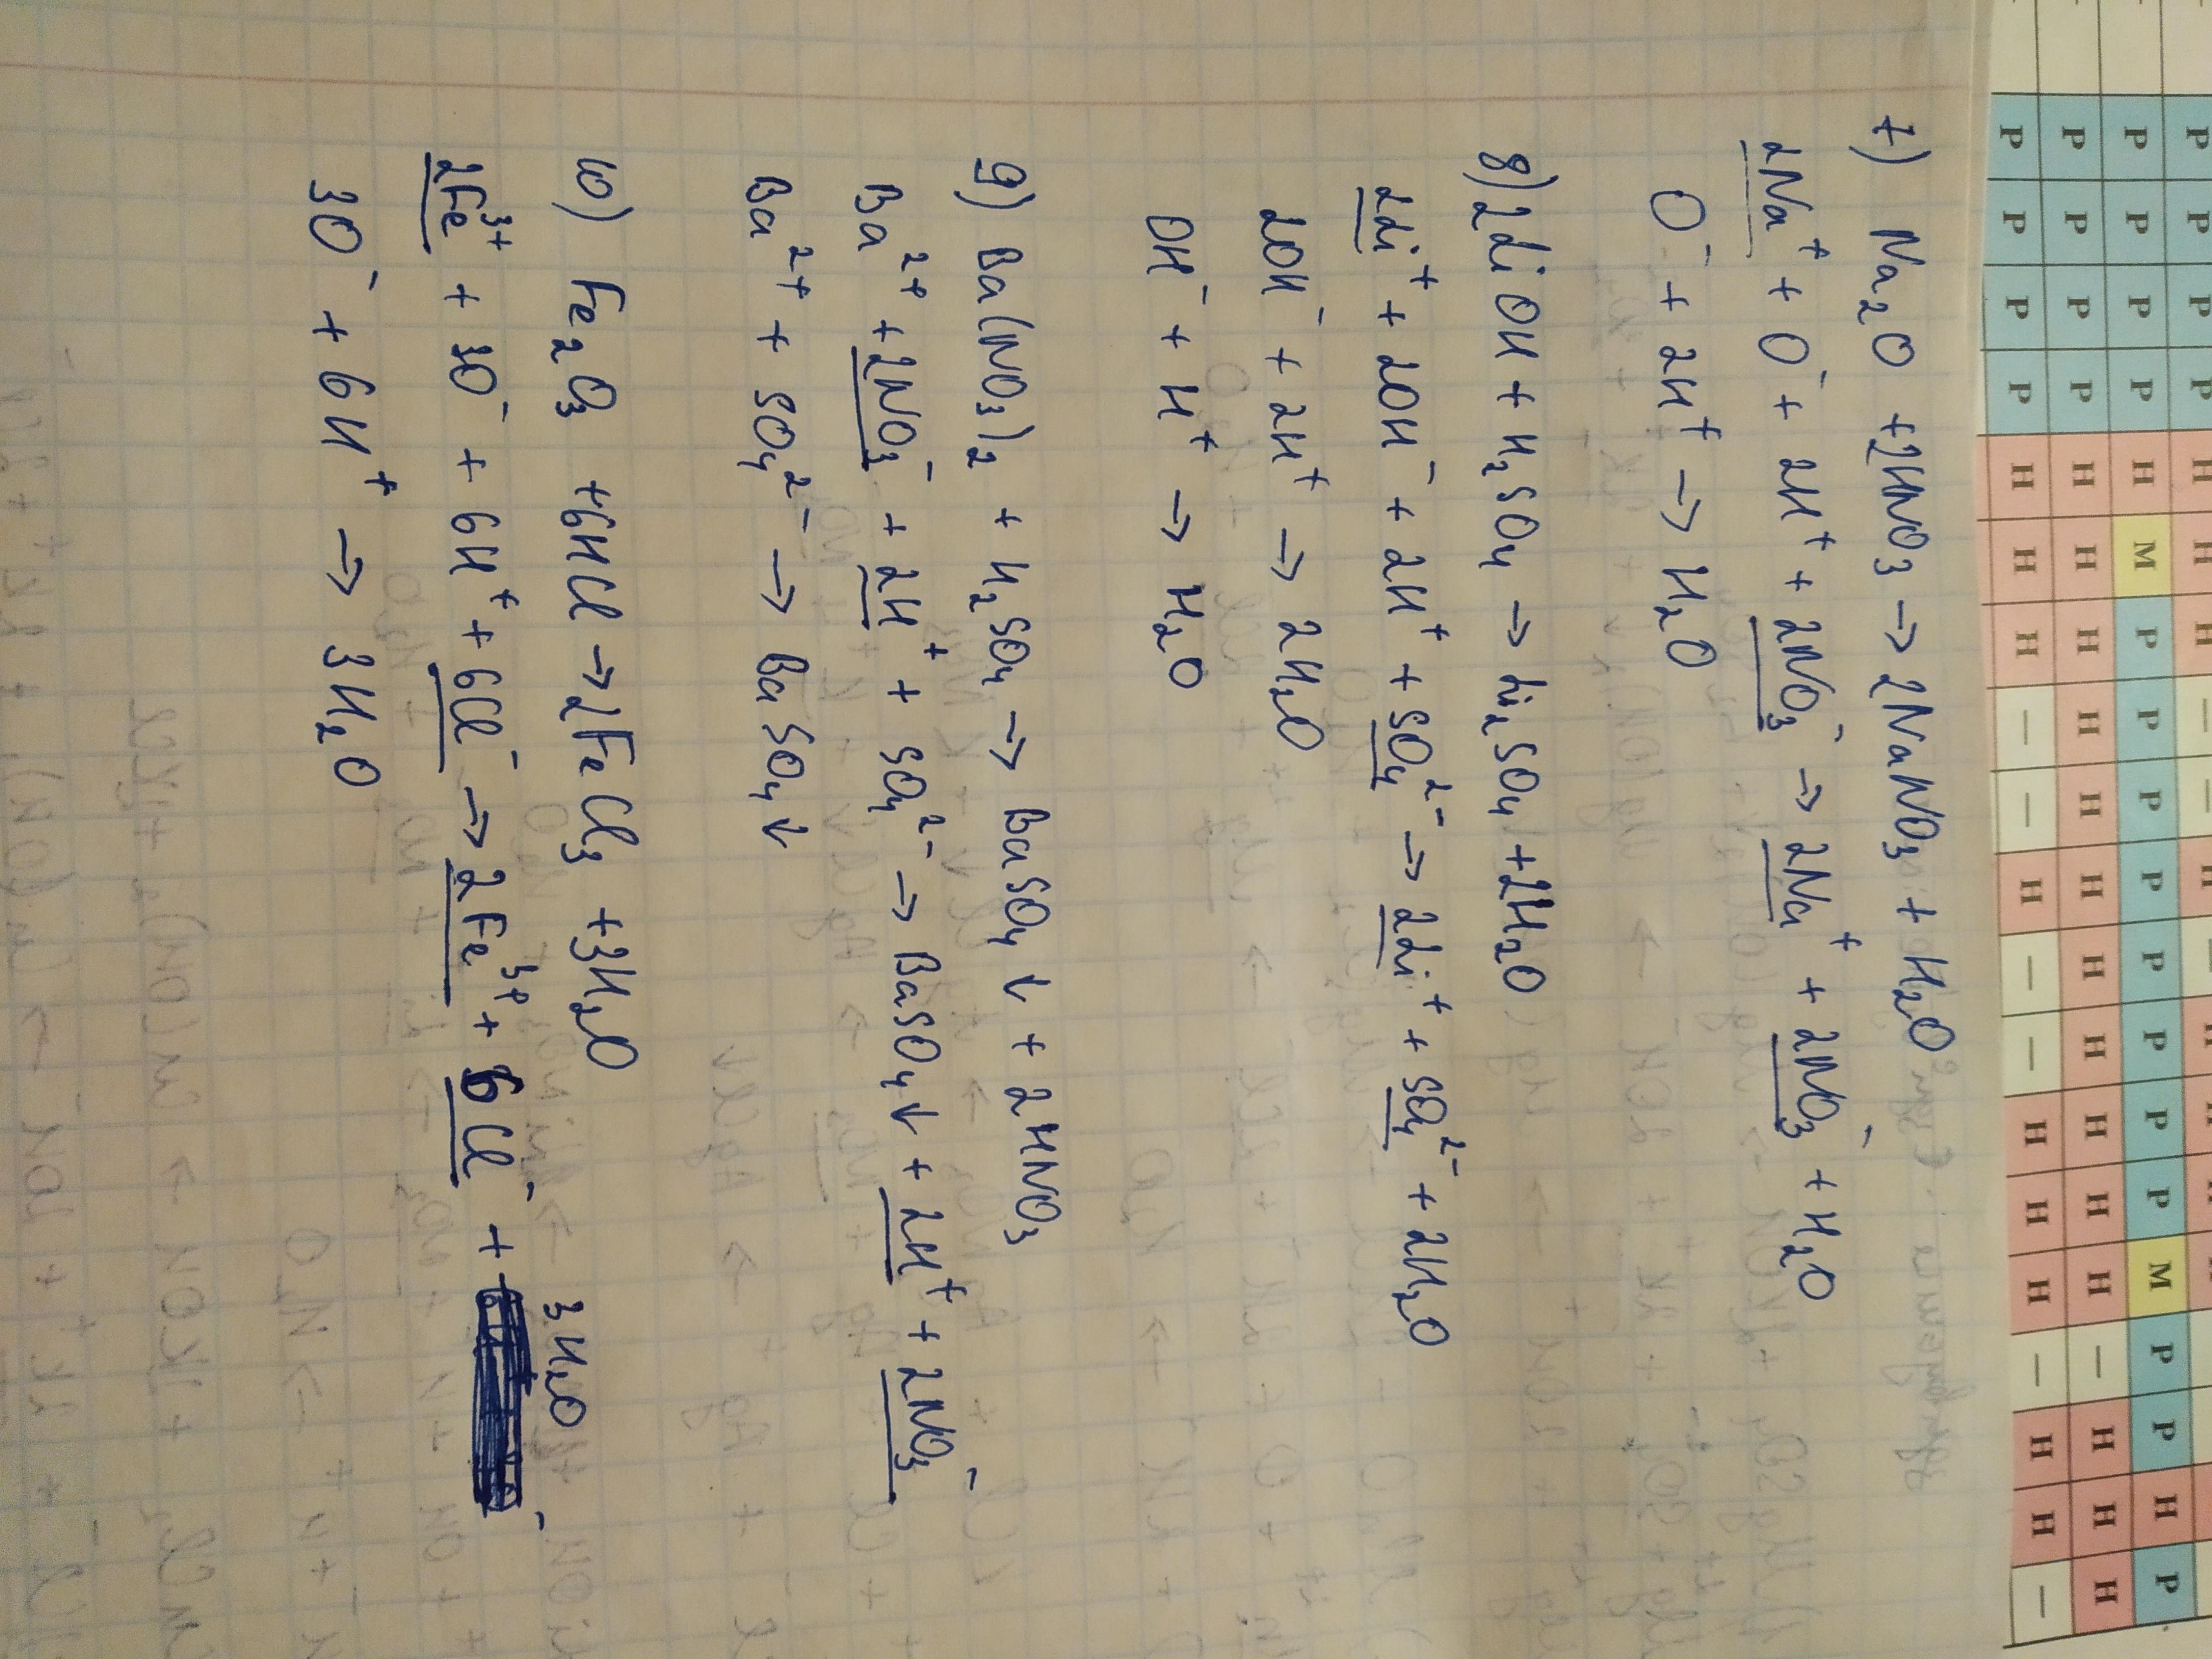 7) Na₂O + 2HNO₃ → 2NaNO₃ + H₂O
2Na⁺ + O⁻ + 2H⁺ + 2NO₃⁻ → 2Na⁺ + 2NO₃⁻ + H₂O
O⁻ + 2H⁺ → H₂O
8) 2LiOH + H₂SO₄ → Li₂SO₄ + 2H₂O
2Li⁺ + 2OH⁻ + 2H⁺ + SO₄²⁻ → 2Li⁺ + SO₄²⁻ + 2H₂O
2OH⁻ + 2H⁺ → 2H₂O
OH⁻ + H⁺ → H₂O
9) Ba(NO₃)₂ + H₂SO₄ → BaSO₄↓ + 2HNO₃
Ba²⁺ + 2NO₃⁻ + 2H⁺ + SO₄²⁻ → BaSO₄↓ + 2H⁺ + 2NO₃⁻
Ba²⁺ + SO₄²⁻ → BaSO₄↓
10) Fe₂O₃ + 6HCl → 2FeCl₃ + 3H₂O
2Fe³⁺ + 3O⁻ + 6H⁺ + 6Cl⁻ → 2Fe³⁺ + 6Cl⁻ + 3H₂O
3O⁻ + 6H⁺ → 3H₂O
Р Р Р Р Н М Р Р Р Р Р Р Р Р М Р Р Н Р
Р Р Р Р Н Н Н Н Н Н Н Н Н Н Н — Н Н Н
Р Р Р Р Н Н Н — — Н — — Н Н Н — Н Н —